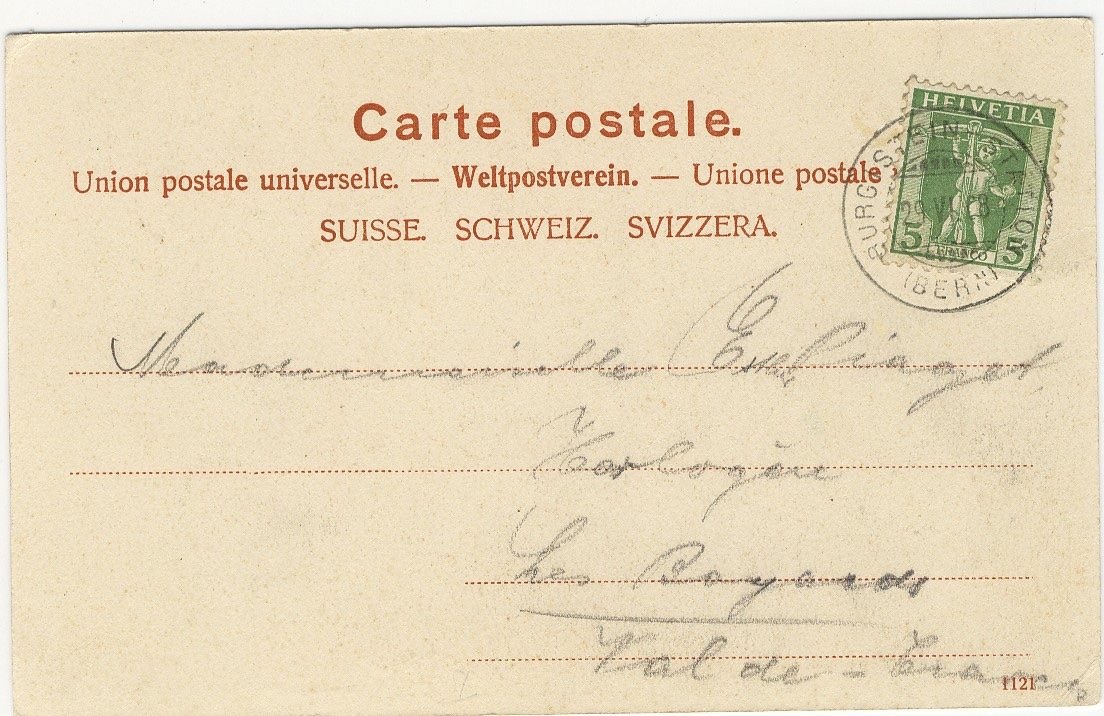 Carte postale.
Union postale universelle. — Weltpostverein. — Unione postale
SUISSE. SCHWEIZ. SVIZZERA.
HELVETIA
5 FRANCO 5
BURGISTEIN STATION
(BERN)
Mademoiselle Piaget
Horlogère
Les Bayards
Val de-Travers
1121